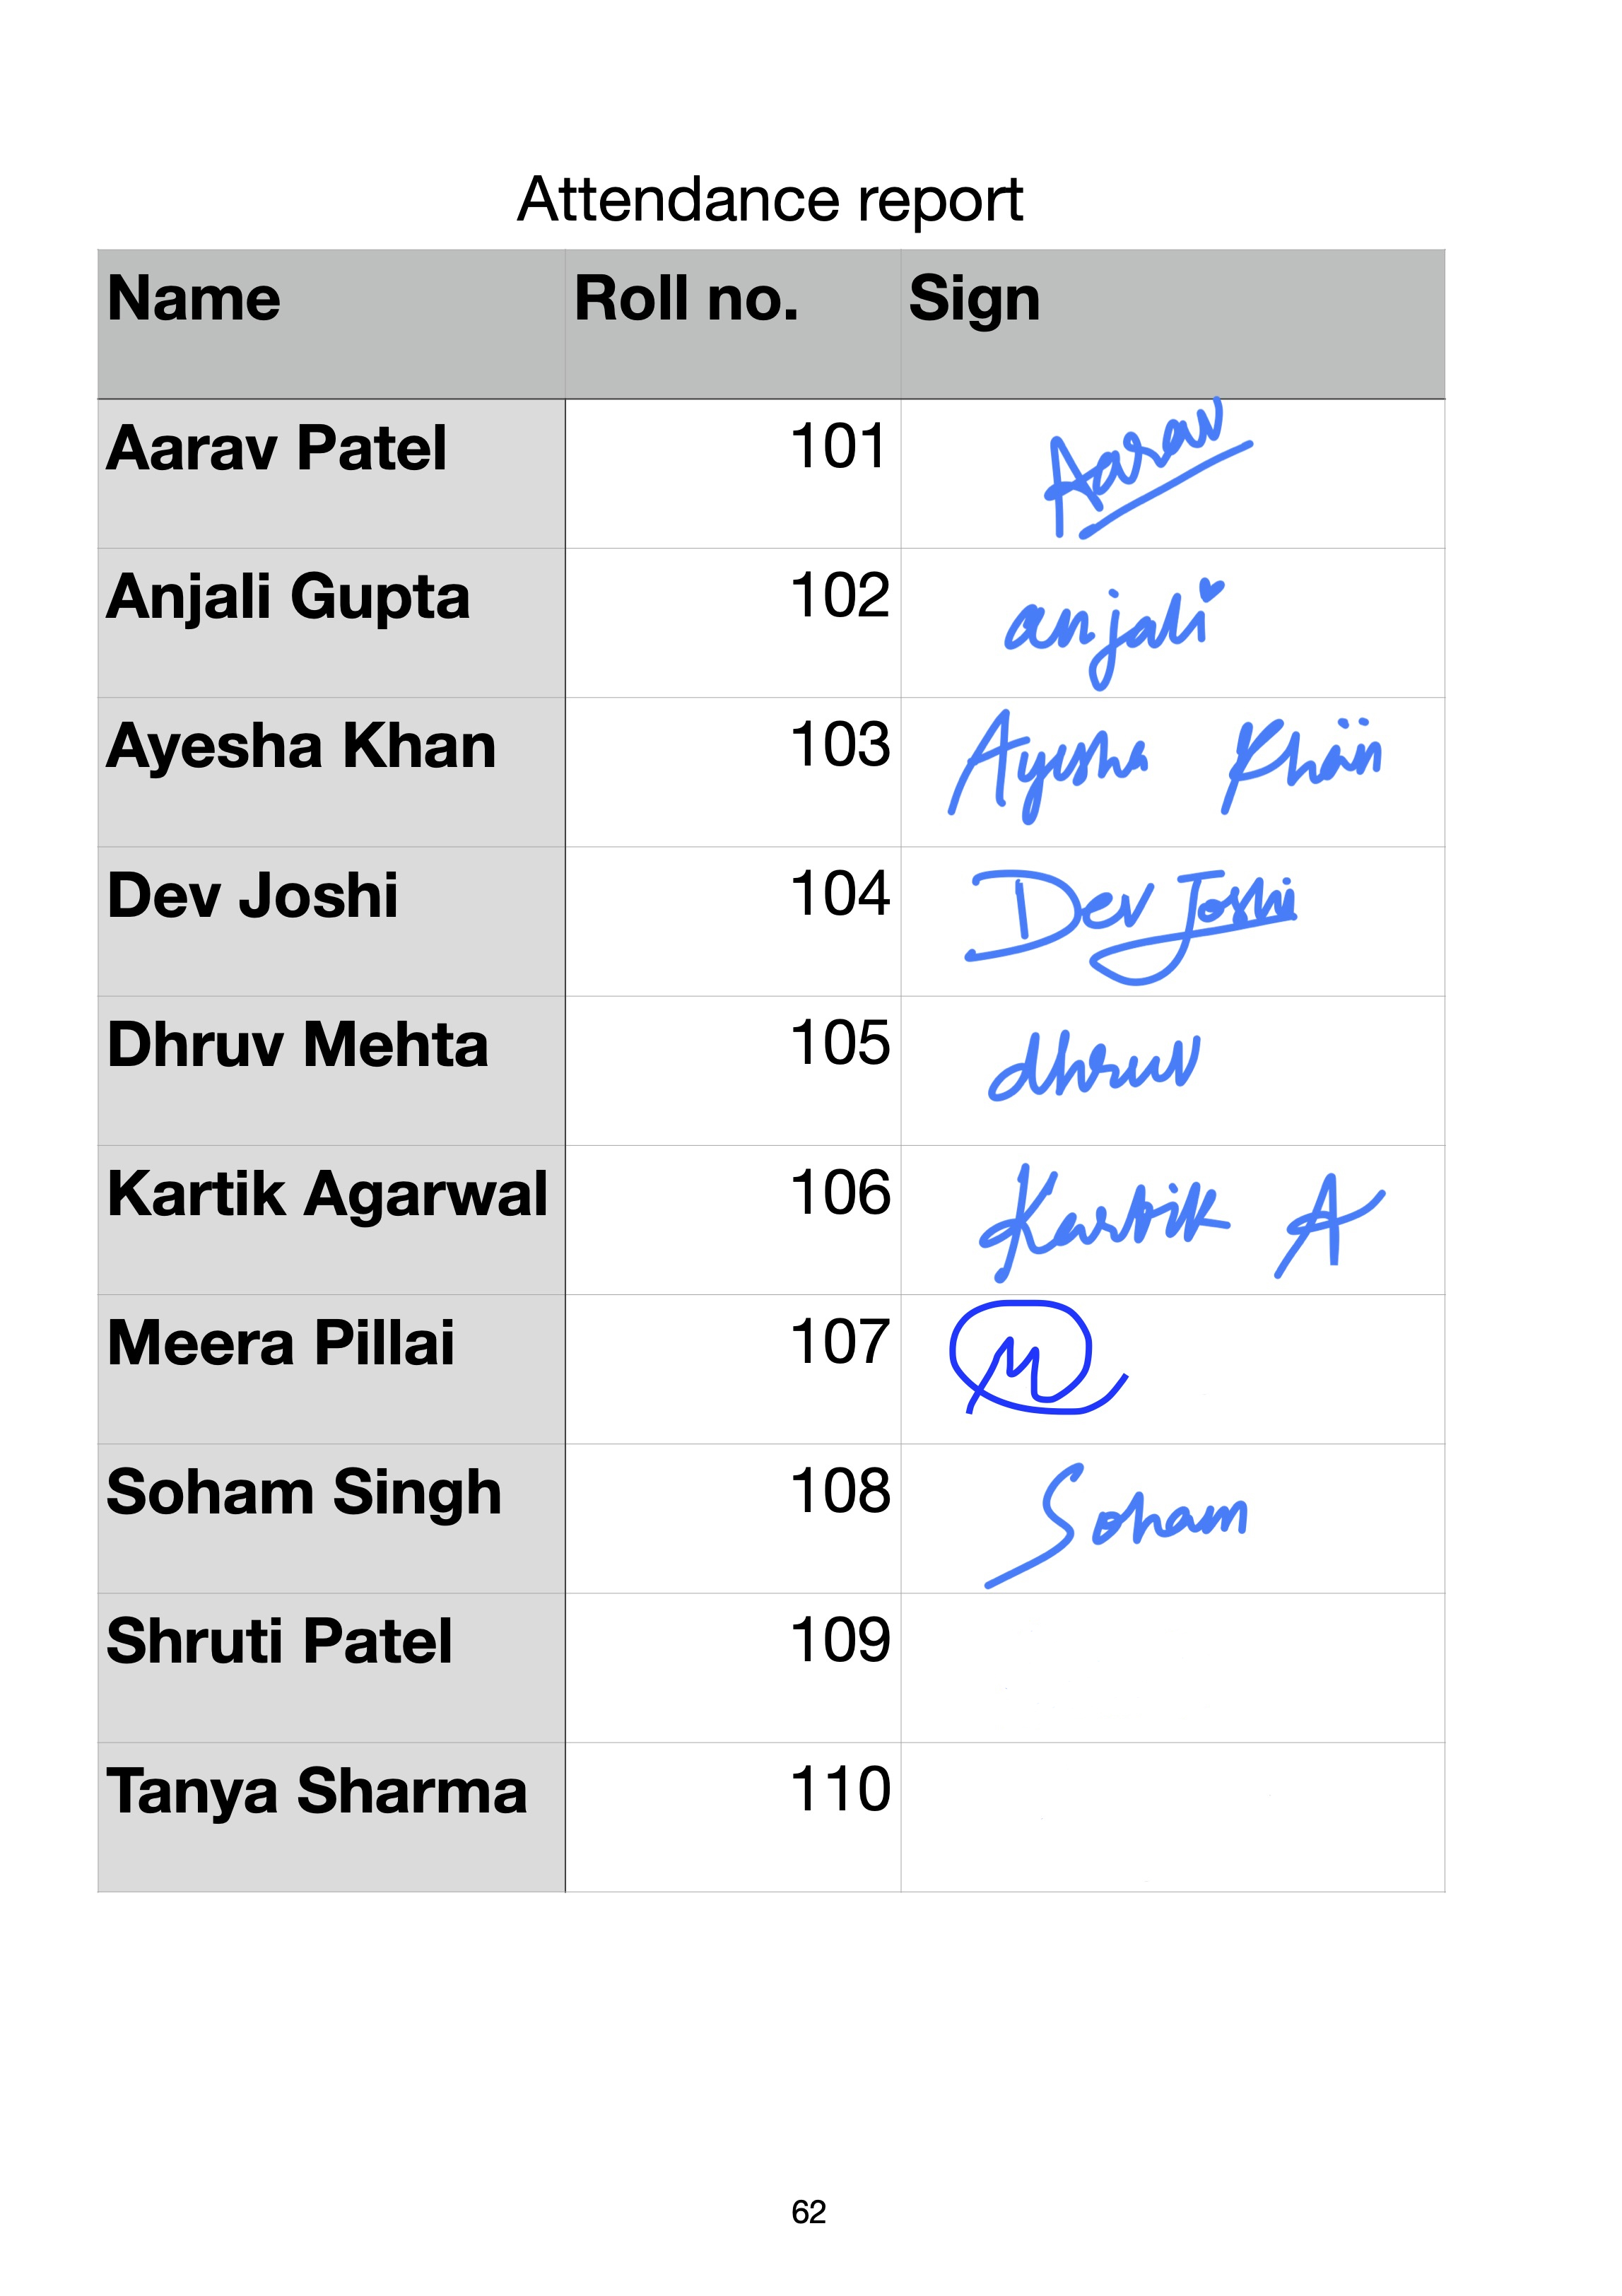 Attendance report
Name Roll no. Sign
Aarav Patel 101 Aarav
Anjali Gupta 102 anjali
Ayesha Khan 103 Ayesha Khan
Dev Joshi 104 Dev Joshi
Dhruv Mehta 105 dhruv
Kartik Agarwal 106 Kartik A
Meera Pillai 107 M
Soham Singh 108 Soham
Shruti Patel 109
Tanya Sharma 110
62